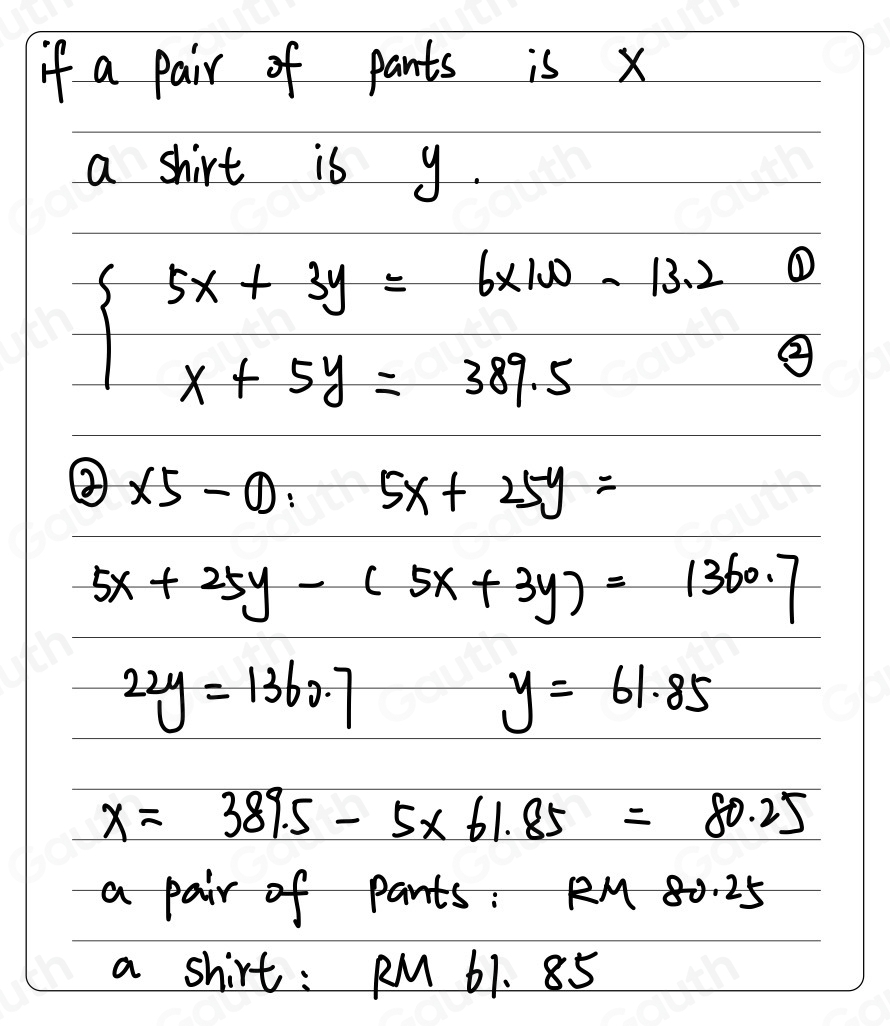 if a pair of pants is x
a shirt is y.
{ 5x + 3y = 6×100 - 13.2 ①
x + 5y = 389.5 ②
② ×5 - ①: 5x + 25y =
5x + 25y - ( 5x + 3y) = 1360.7
22y = 1360.7 y = 61.85
x = 389.5 - 5× 61.85 = 80.25
a pair of pants: RM 80.25
a shirt: RM 61.85